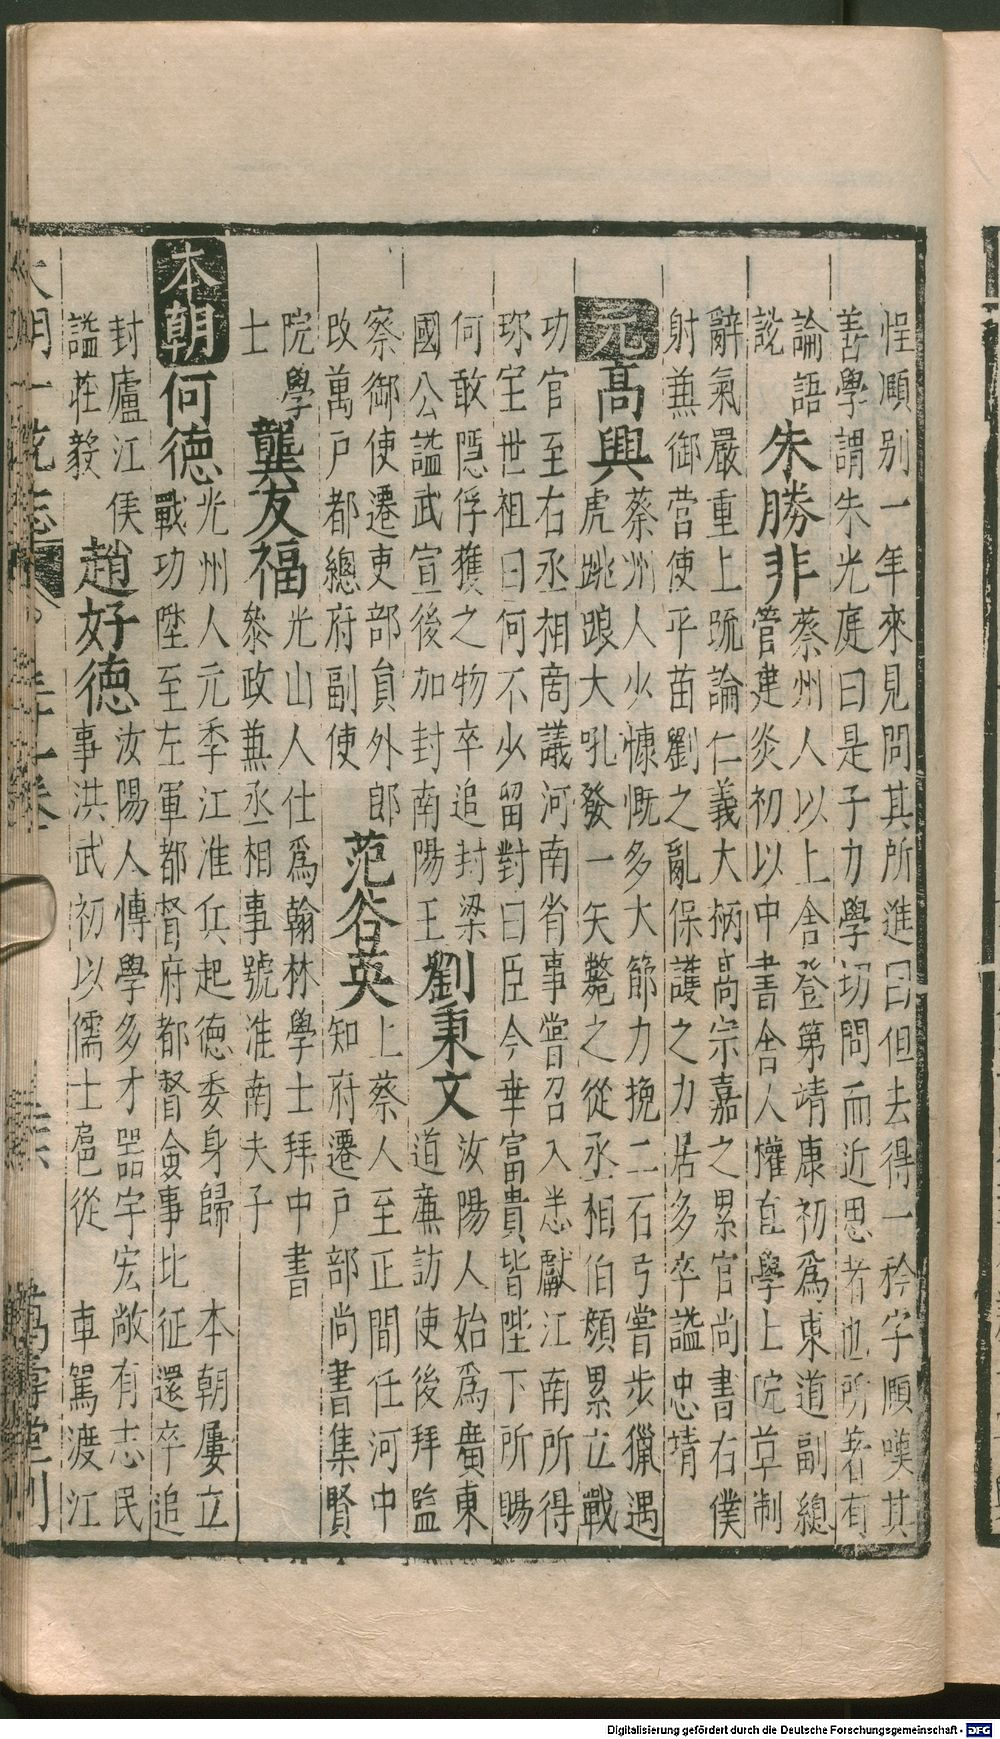 惶頋别一年來見問其所進曰但去得一矜字頋嘆其
善學謂朱光庭曰是子力學切問而近思者也所著有
論語
說
朱勝非
蔡州人以上舍登第靖康初爲東道副總
管建炎初以中書舍人權直學士院草制
辭氣嚴重上䟽論仁義大柄高宗嘉之累官尚書右僕
射兼御营使平苗劉之亂保護之力居多卒謚忠靖
元
高興
蔡州人少慷慨多大節力挽二石弓嘗步獵遇
虎跳踉大吼發一矢斃之從丞相伯顔累立戰
功官至右丞相啇議河南省事嘗召入悉獻江南所得
珎宝世祖曰何不少留對曰臣今幸富貴皆陛下所賜
何敢隠俘獲之物卒追封梁
國公謚武宣後加封南陽王
劉秉文
汝陽人始爲廣東
道廉訪使後拜監
察御使遷吏部員外郎
改萬户都總府副使
范谷英
上蔡人至正間任河中
知府遷户部尚書集賢
院學
士
龔友福
光山人仕爲翰林學士拜中書
叅政兼丞相事號淮南夫子
本朝
何德
光州人元季江淮兵起德委身歸 本朝屢立
戰功陞至左軍都督府都督僉事北征還卒追
封廬江侯
謚莊毅
趙好德
汝陽人愽學多才器宇宏敞有志民
事洪武初以儒士扈從 車駕渡江
大明一統志
萬壽堂刊
Digitalisierung gefördert durch die Deutsche Forschungsgemeinschaft - DFG